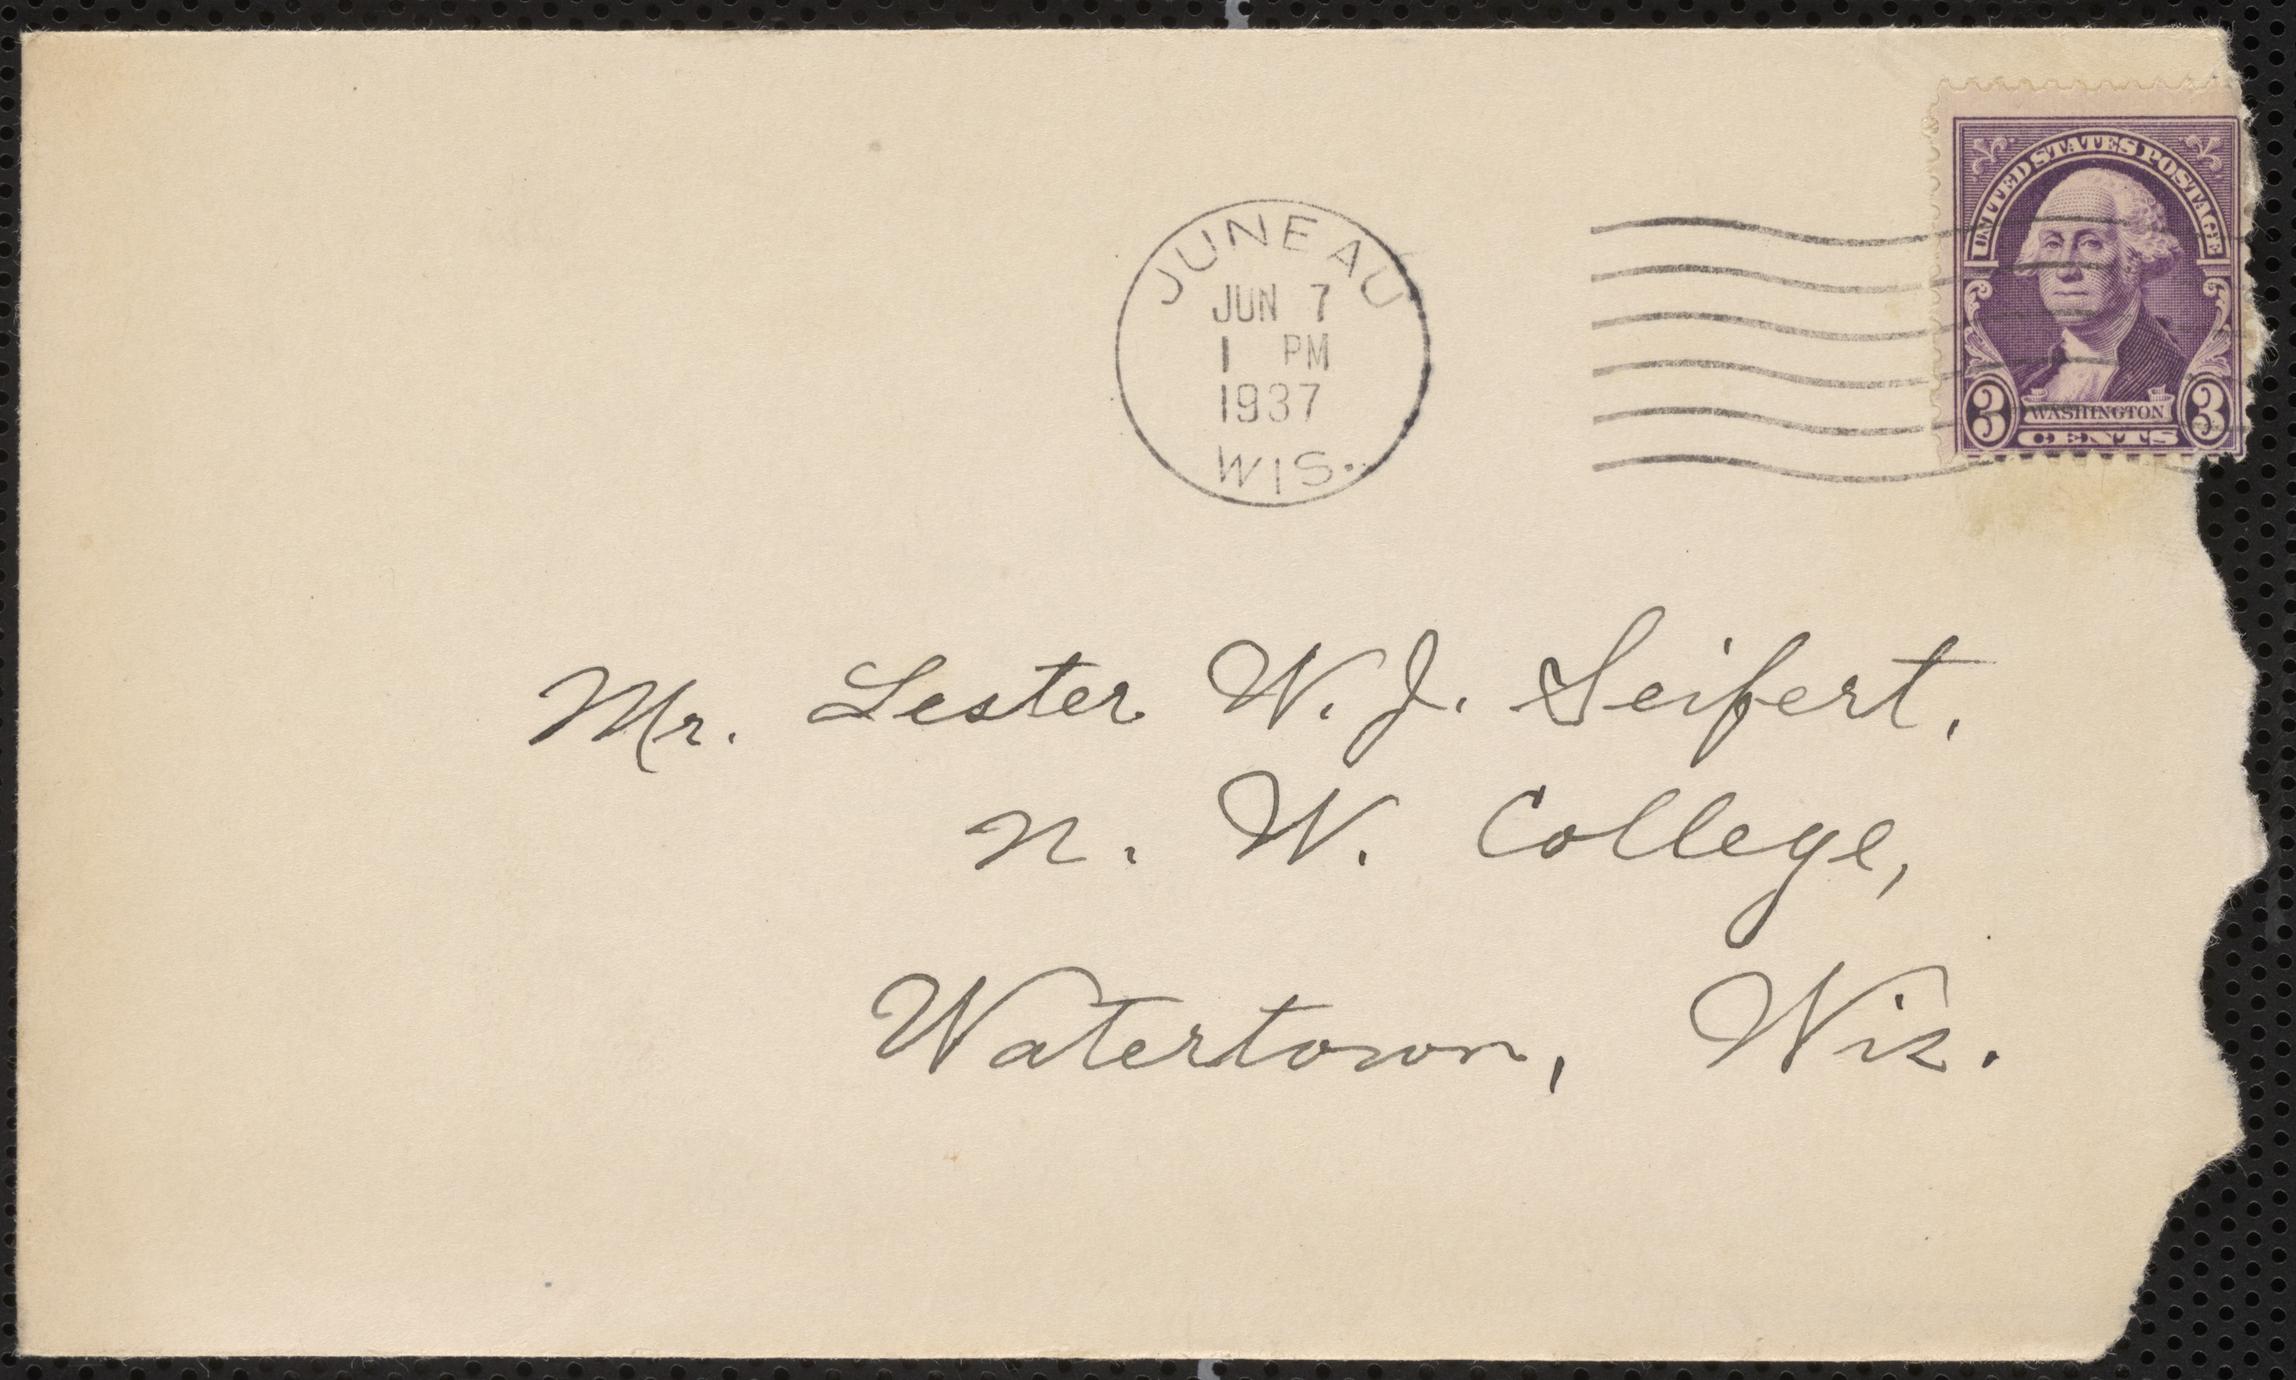 JUNEAU
JUN 7
1 PM
1937
WIS.
UNITED STATES POSTAGE
3 WASHINGTON 3
CENTS
Mr. Lester W. J. Seifert,
N. W. College,
Watertown, Wis.